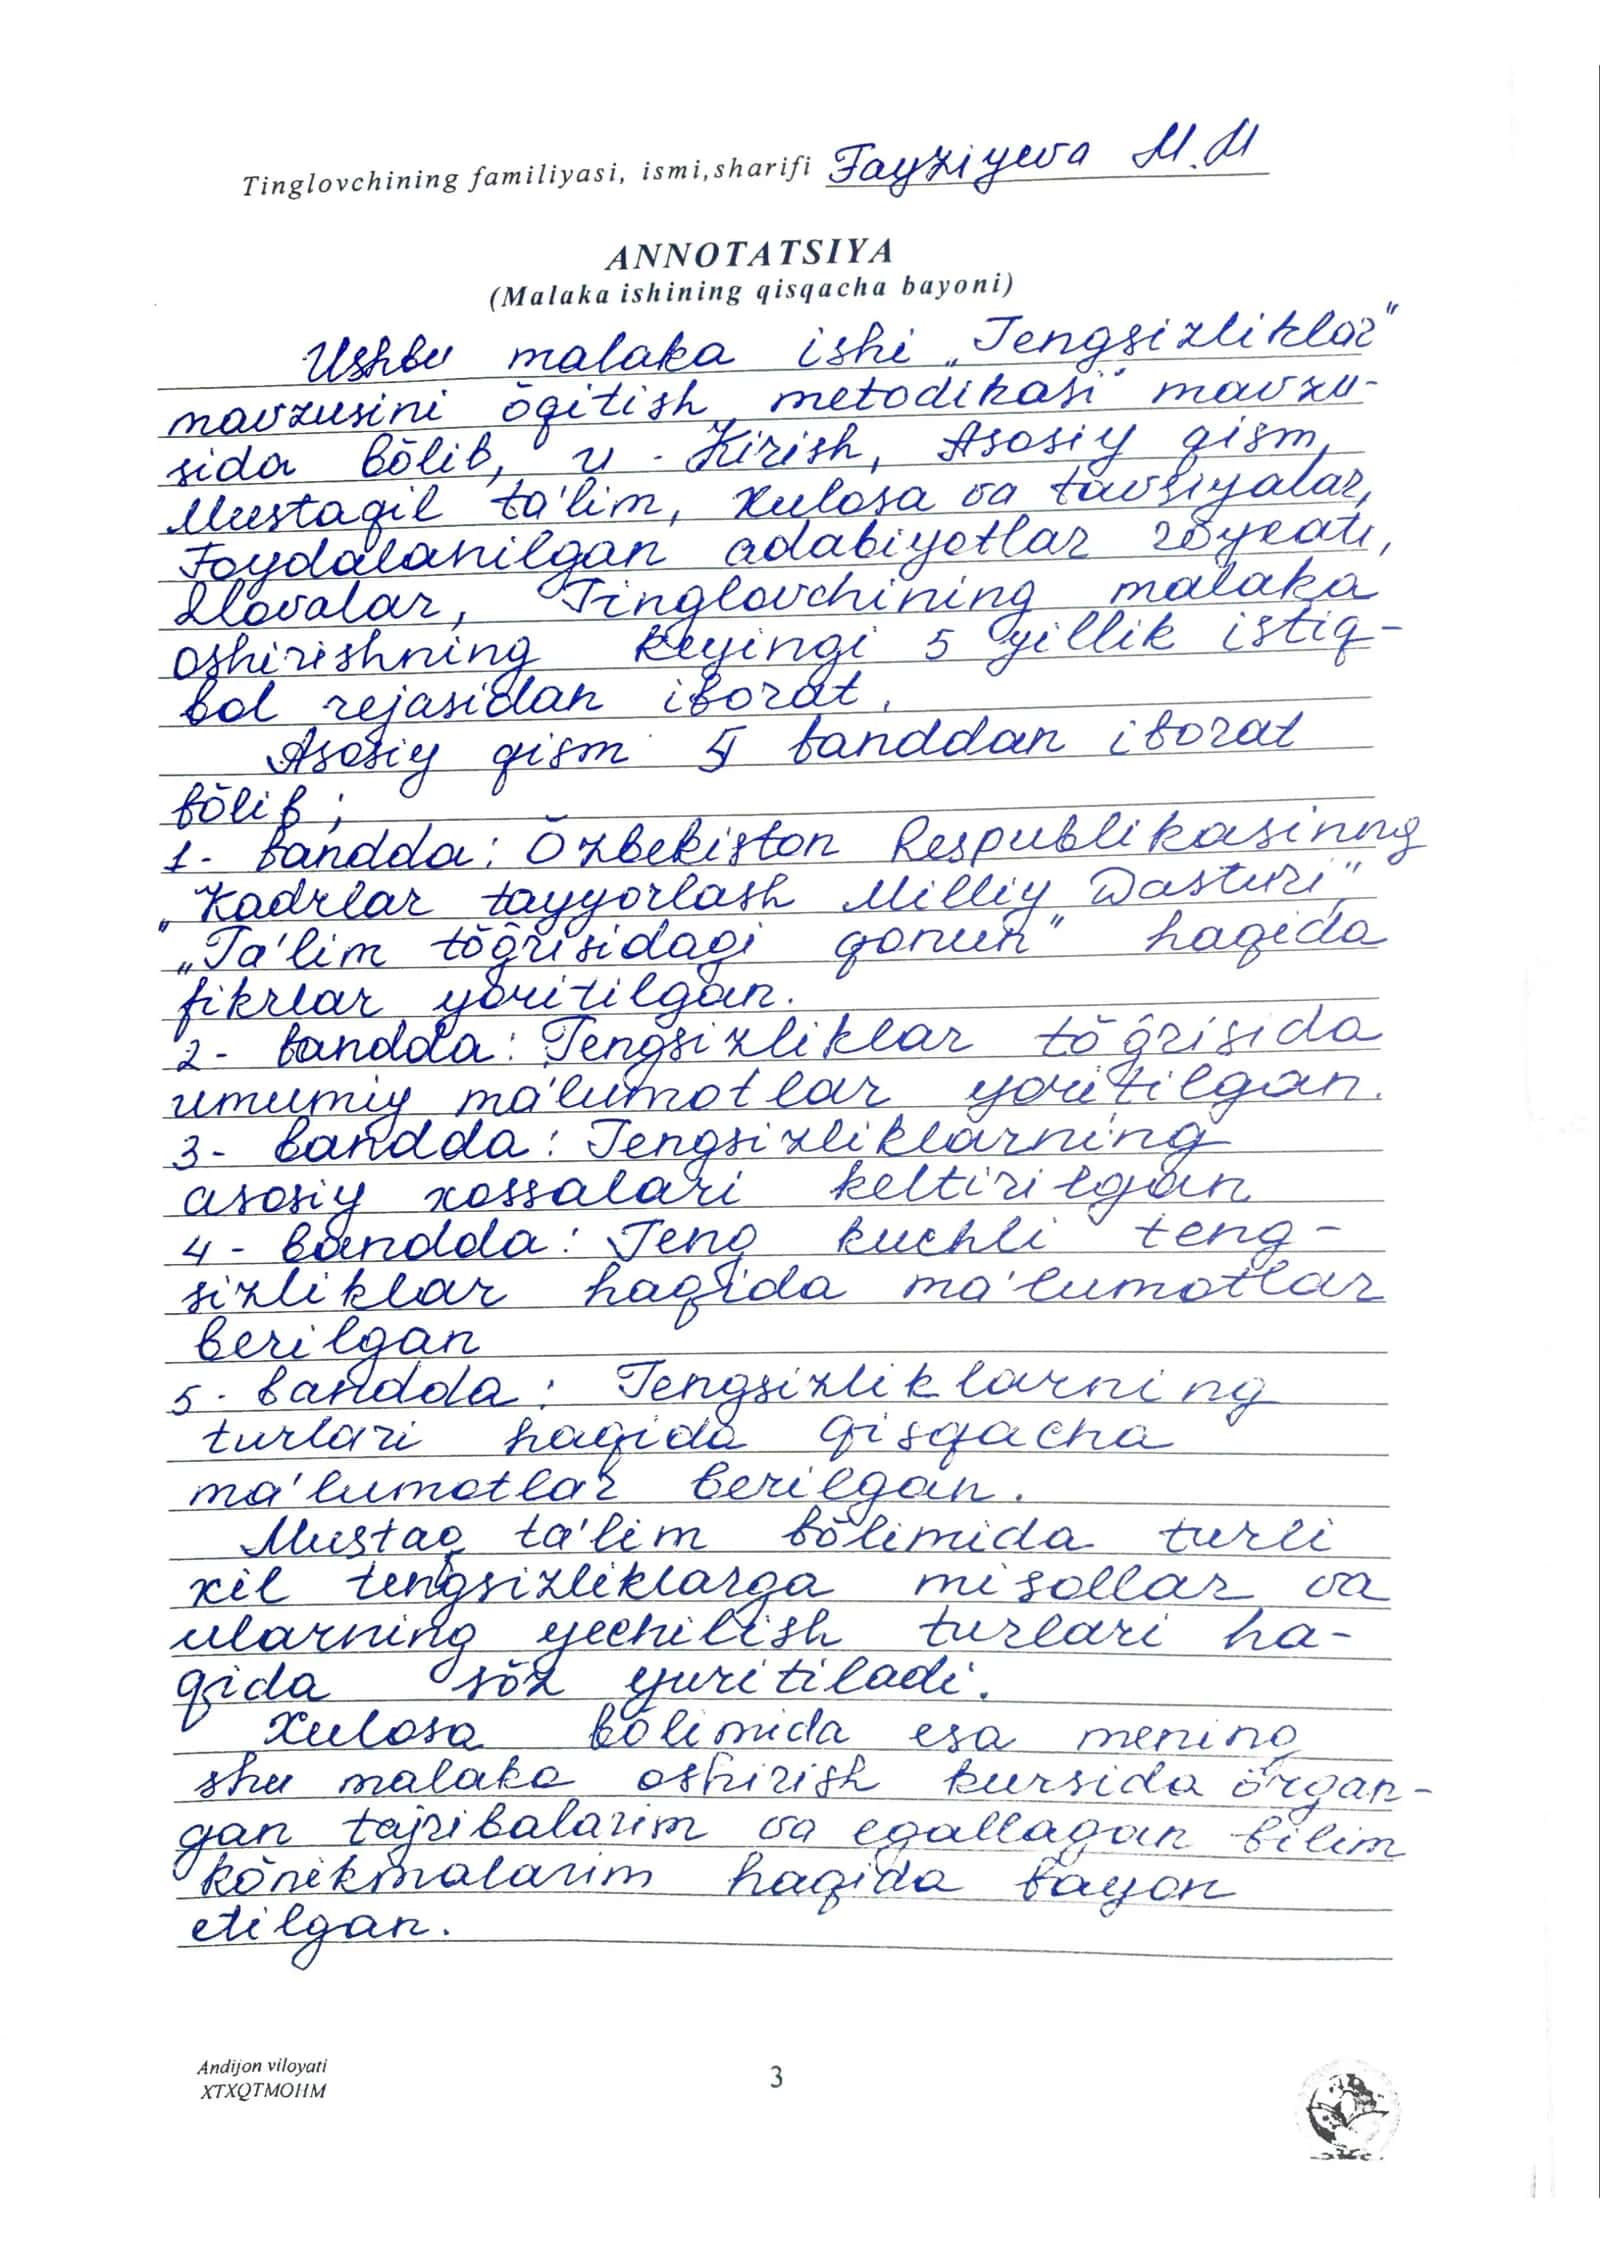 Tinglovchining familiyasi, ismi,sharifi Fayziyeva M.M
ANNOTATSIYA
(Malaka ishining qisqacha bayoni)
Ushbu malaka ishi „Tengsizliklar"
mavzusini õqitish metodikasi" mavzu-
sida bõlib, u Kirish, Asosiy qism,
Mustaqil ta'lim, Xulosa va tavsiyalar,
Foydalanilgan adabiyotlar rõyxati,
Ilovalar, Tinglovchining malaka
oshirishning keyingi 5 yillik istiq-
bol rejasidan iborat.
Asosiy qism 5 banddan iborat
bõlib;
1- bandda: Õzbekiston Respublikasining
„Kadrlar tayyorlash Milliy Dasturi",
„Ta'lim tõg̃risidagi qonun" haqida
fikrlar yoritilgan.
2- bandda: Tengsizliklar tõg̃risida
umumiy ma'lumotlar yoritilgan.
3- bandda: Tengsizliklarning
asosiy xossalari keltirilgan
4- bandda: Teng kuchli teng-
sizliklar haqida ma'lumotlar
berilgan
5- bandda: Tengsizliklarning
turlari haqida qisqacha
ma'lumotlar berilgan.
Mustaq ta'lim bõlimida turli
xil tengsizliklarga misollar va
ularning yechilish turlari ha-
qida sõz yuritiladi.
Xulosa bõlimida esa mening
shu malaka oshirish kursida õrgan-
gan tajribalarim va egallagan bilim
kõnikmalarim haqida bayon
etilgan.
Andijon viloyati
XTXQTMOHM
3